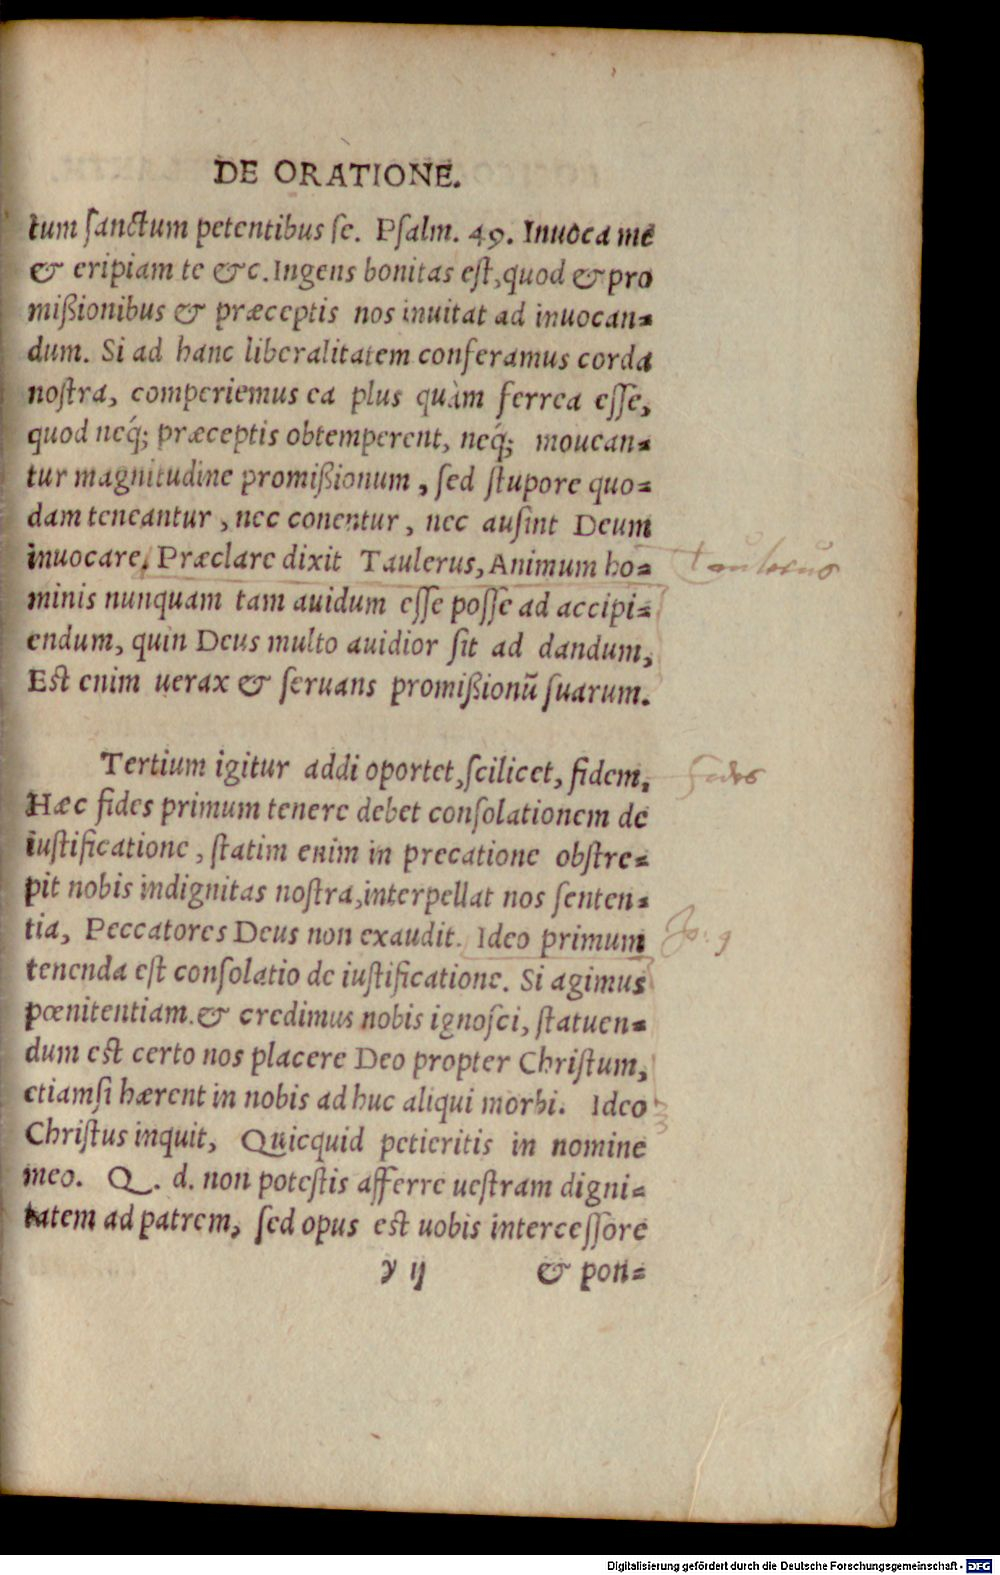 DE ORATIONE.
tum ſanctum petentibus ſe. Pſalm. 49. Inuoca me
& eripiam te &c. Ingens bonitas eſt, quod & pro
mißionibus & præceptis nos inuitat ad inuocan=
dum. Si ad hanc liberalitatem conferamus corda
noſtra, comperiemus ea plus quàm ferrea eſſe,
quod neq́; præceptis obtemperent, neq́; moucan=
tur magnitudine promißionum, ſed ſtupore quo=
dam teneantur, nec conentur, nec auſint Deum
inuocare. Præclare dixit Taulerus, Animum ho=
Taulerus
minis nunquam tam auidum eſſe poſſe ad accipi=
endum, quin Deus multo auidior ſit ad dandum,
Est enim uerax & ſeruans promißionũ ſuarum.
Tertium igitur addi oportet, ſcilicet, fidem,
fides
Hæc fides primum tenere debet conſolationem de
iuſtificatione, ſtatim enim in precatione obſtre=
pit nobis indignitas noſtra, interpellat nos ſenten=
tia, Peccatores Deus non exaudit. Ideo primum
Jo: 9
tenenda est conſolatio de iuſtificatione. Si agimus
pœnitentiam. & credimus nobis ignoſci, ſtatuen=
dum est certo nos placere Deo propter Chriſtum,
etiamſi hærent in nobis ad huc aliqui morbi. Ideo
Chriſtus inquit, Quicquid petieritis in nomine
meo. Q. d. non poteſtis afferre ueſtram digni=
tatem ad patrem, ſed opus est uobis interceſſore
y ij & pon=
Digitalisierung gefördert durch die Deutsche Forschungsgemeinschaft - DFG